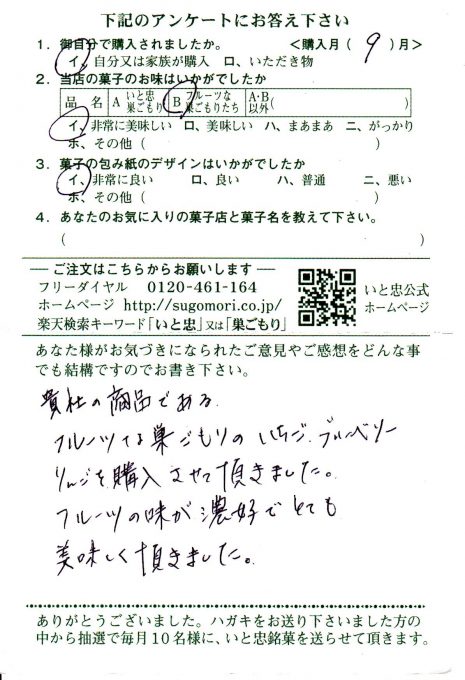 下記のアンケートにお答え下さい
1. 御自分で購入されましたか。 <購入月（ 9 ）月>
イ、自分又は家族が購入 ロ、いただき物
2. 当店の菓子のお味はいかがでしたか
品 名 A いと忠巣ごもり B フルーツな巣ごもりたち A・B以外（ ）
イ、非常に美味しい ロ、美味しい ハ、まあまあ ニ、がっかり
ホ、その他（ ）
3. 菓子の包み紙のデザインはいかがでしたか
イ、非常に良い ロ、良い ハ、普通 ニ、悪い
ホ、その他（ ）
4. あなたのお気に入りの菓子店と菓子名を教えて下さい。
（ ）
― ご注文はこちらからお願いします ―
フリーダイヤル 0120-461-164
ホームページ http://sugomori.co.jp/
楽天検索キーワード「いと忠」又は「巣ごもり」
いと忠公式
ホームページ
あなた様がお気づきになられたご意見やご感想をどんな事
でも結構ですのでお書き下さい。
貴社の商品である、
フルーツな巣ごもりの いちご、ブルーベリー
りんごを購入させて頂きました。
フルーツの味が濃好でとても
美味しく頂きました。
ありがとうございました。ハガキをお送り下さいました方の
中から抽選で毎月10名様に、いと忠銘菓を送らせて頂きます。